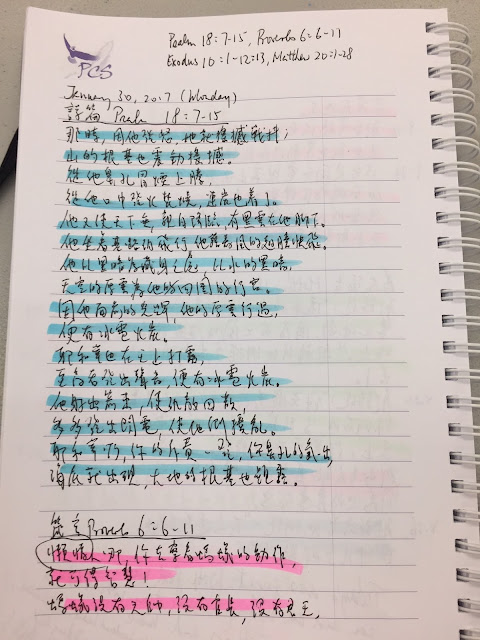 PCS
Psalm 18:7-15, Proverbs 6:6-11
Exodus 10:1-12:13, Matthew 20:1-28
January 30, 2017 (Monday)
詩篇 Psalm 18:7-15
那時，因他發怒，地就搖撼戰抖；
山的根基也震動搖撼。
從他鼻孔冒煙上騰，
從他口中發火焚燒，連炭也着了。
他又使天下垂，親自降臨，有黑雲在他腳下。
他坐着基路伯飛行，他藉着風的翅膀快飛。
他以黑暗為藏身之處，以水的黑暗，
天空的厚雲為他的四圍的行宮。
因他面前的光輝，他的厚雲行過，
便有冰雹火炭。
耶和華也在天上打雷，
至高者發出聲音，便有冰雹火炭。
他射出箭來，使仇敵四散，
多多發出閃電，使他們擾亂。
耶和華啊，你的斥責一發，你鼻孔的氣一出，
海底就出現，大地的根基也顯露。
箴言 Proverbs 6:6-11
懶惰人哪，你去察看螞蟻的動作，
就可得智慧！
螞蟻沒有元帥，沒有官長，沒有君王，